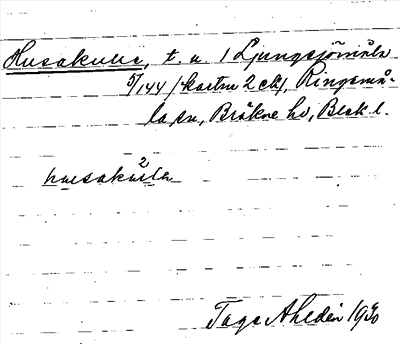 Husakulle, t. u. 1 Ljungsjömåla
5/144 (kartan 2 cM), Ringamå-
la sn, Bräkne hd, Blek. l.
2
husakula
Tage Ahldén 1930